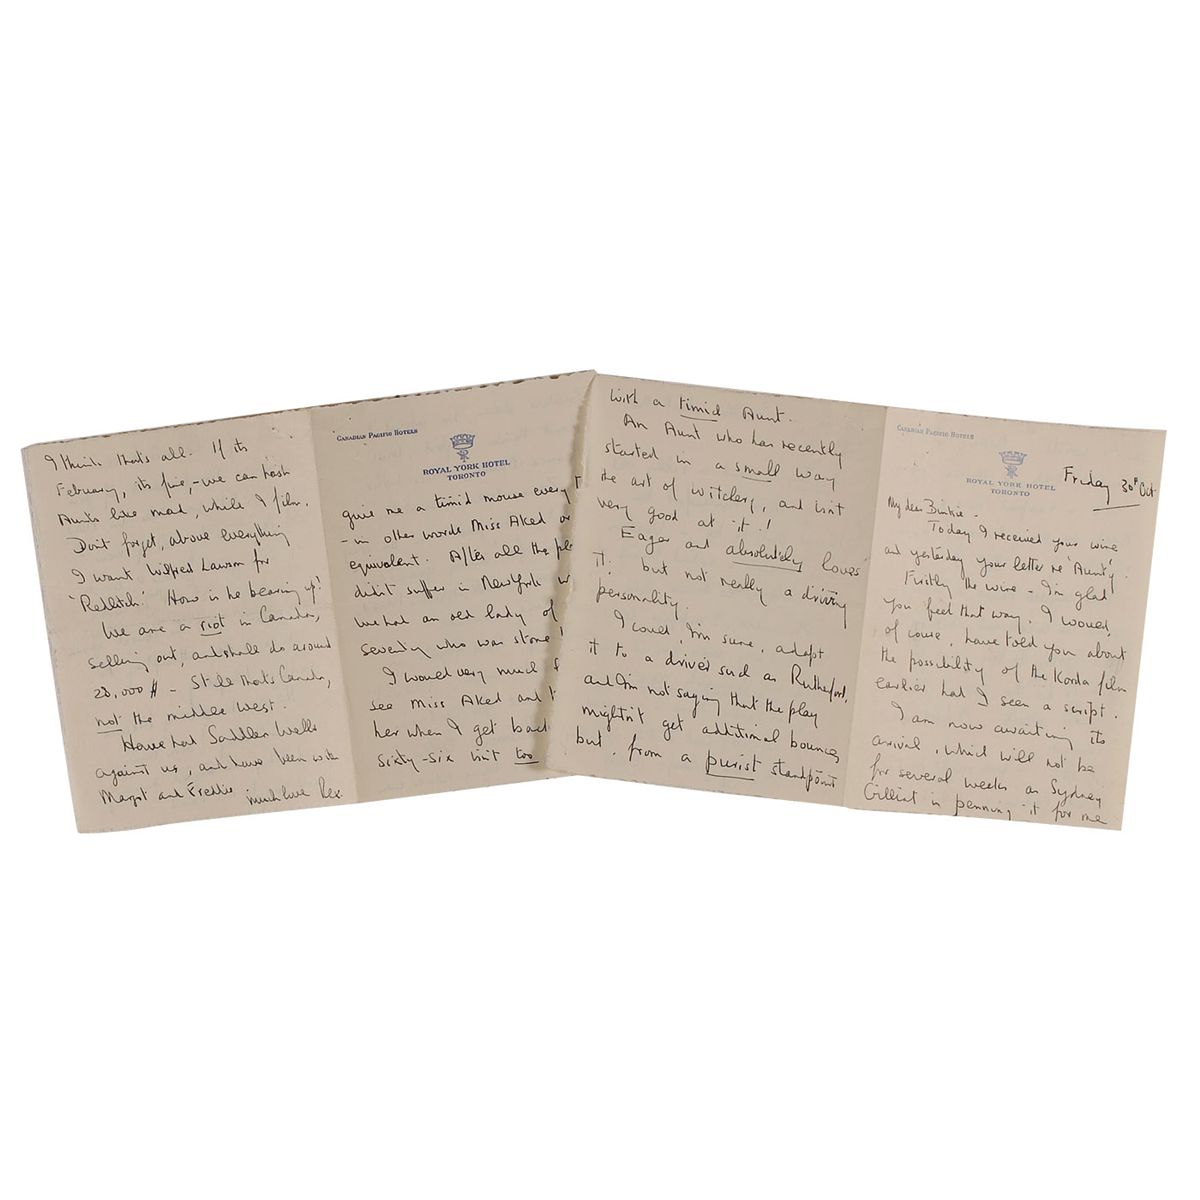 I think that's all. If its
February, its fine, - we can hash
Aunts like mad, while I film.
Don't forget, above everything
I want Wilfred Lawson for
'Redlitch.' How is he bearing up?
We are a riot in Canada,
selling out, and shall do around
20,000 $ - Still that's Canada,
not the middle west.
Have had Sadlers Wells
against us, and have been with
Margot and Freddie much love Rex.
CANADIAN PACIFIC HOTELS
ROYAL YORK HOTEL
TORONTO
give me a timid mouse every t
- in other words Miss Aked or
equivalent. After all the pla
didn't suffer in New York w
we had an old lady of
seventy who was stone
I would very much
see Miss Aked and
her when I get back
sixty-six isn't too
with a timid Aunt.
An Aunt who has recently
started in a small way
the art of witchery, and isn't
very good at it!
Eager and absolutely loves
it. but not really a driving
personality.
I could, I'm sure, adapt
it to a driver such as Rutherford,
and I'm not saying that the play
mightn't get additional bounces
but, from a purist standpoint
CANADIAN PACIFIC HOTELS
ROYAL YORK HOTEL
TORONTO
Friday 30th Oct.
My dear Binkie.
Today I received your wire
and yesterday your letter re 'Aunty'.
Firstly the wire - I'm glad
you feel that way. I would,
of course, have told you about
the possibility of the Korda film
earlier had I seen a script.
I am now awaiting its
arrival, which will not be
for several weeks as Sydney
Gilliat is penning it for me